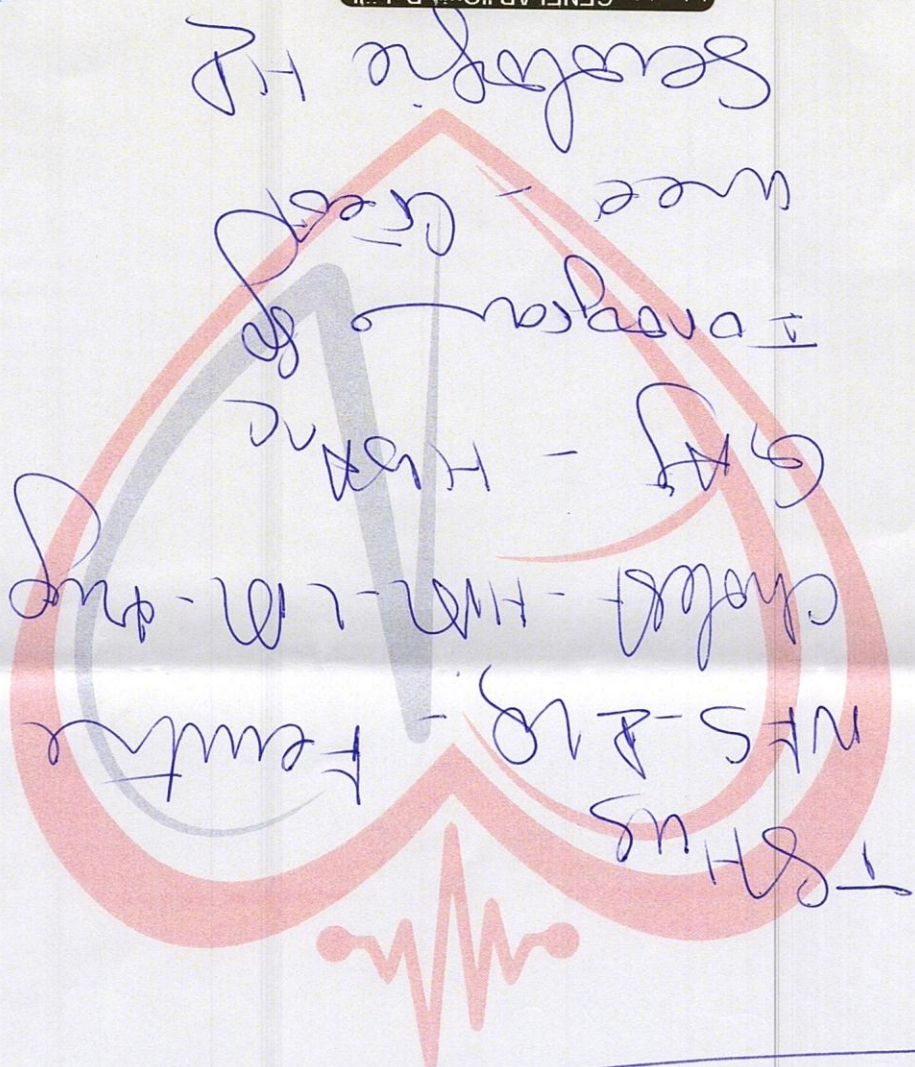 TSH us
NFS - PLQ - Ferritine
Cholest - HDL - LDL - trig
GAJ - HbA1c
Ionogramme
Uree - Creat
Serologie HP